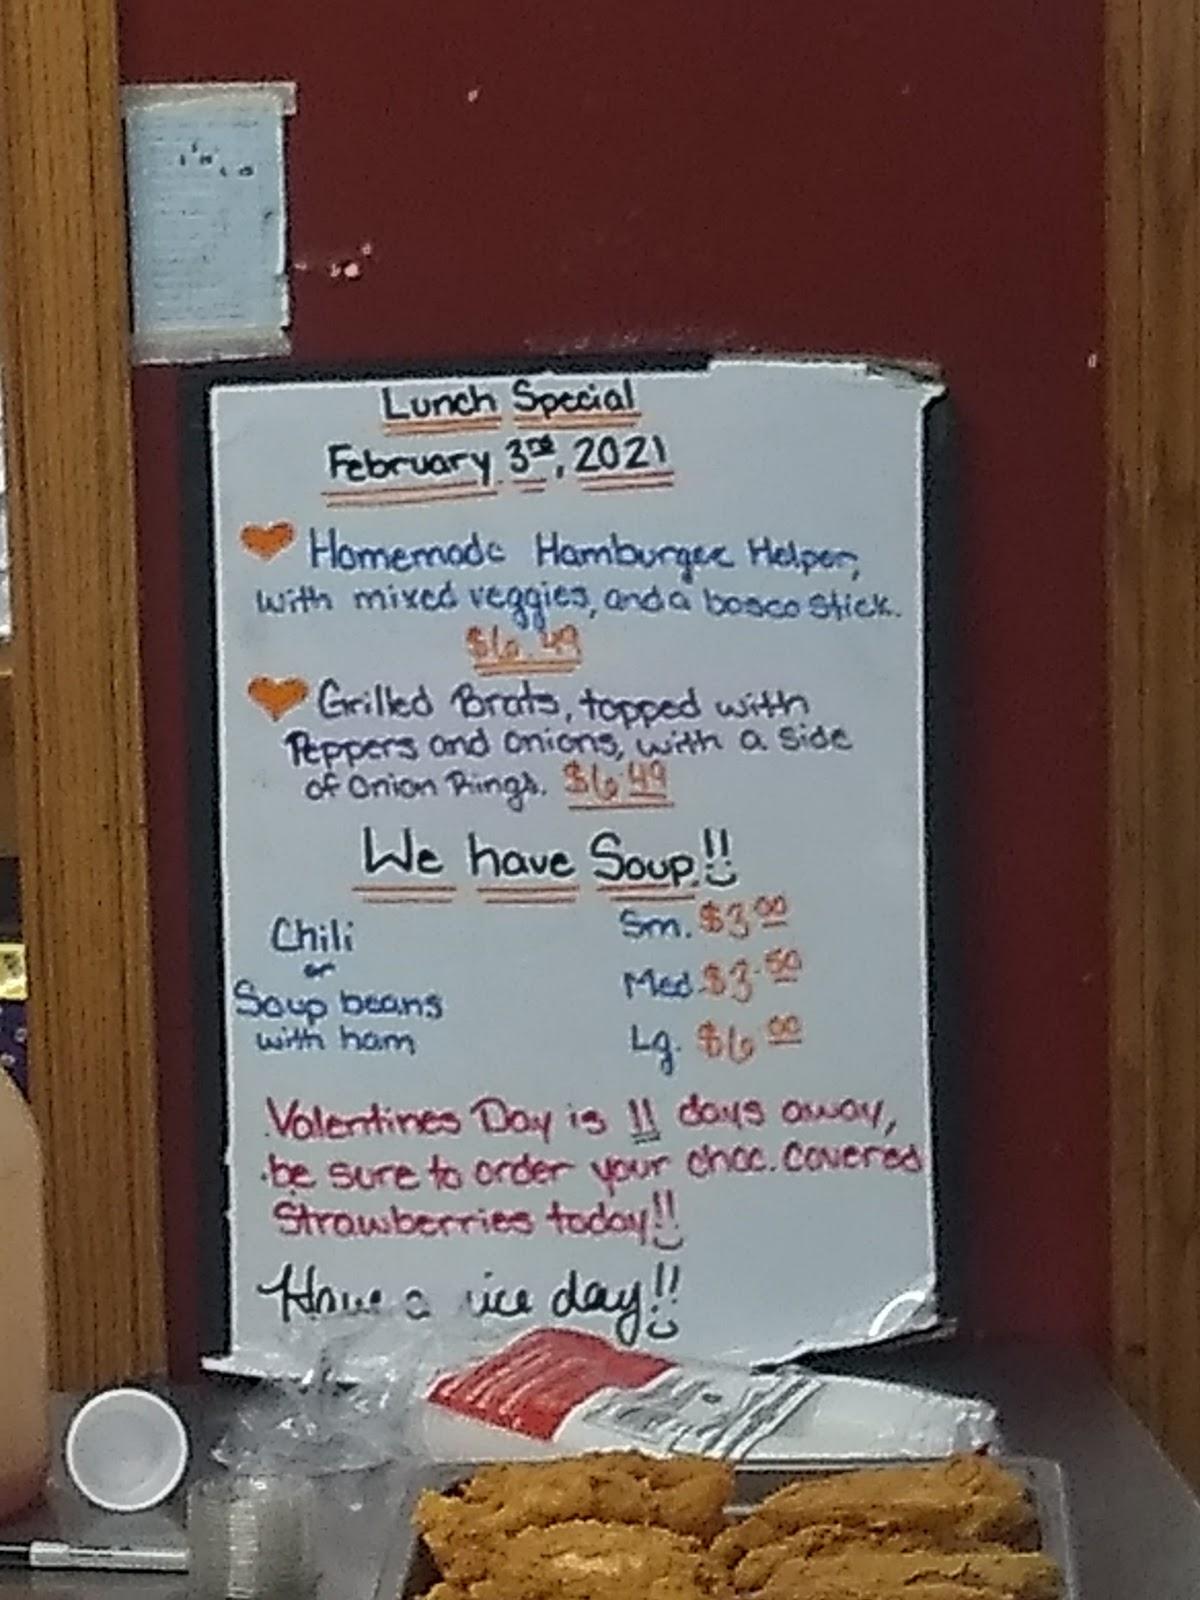 Lunch Special
February 3rd, 2021
Homemade Hamburger Helper,
with mixed veggies, and a bosco stick.
$6.49
Grilled Brats, topped with
Peppers and onions, with a side
of Onion Rings. $6.49
We have Soup!!
Chili
or
Soup beans
with ham
Sm. $3.00
Med. $3.50
Lg. $6.00
Valentines Day is 11 days away,
be sure to order your choc. covered
Strawberries today!!
Have a nice day!!